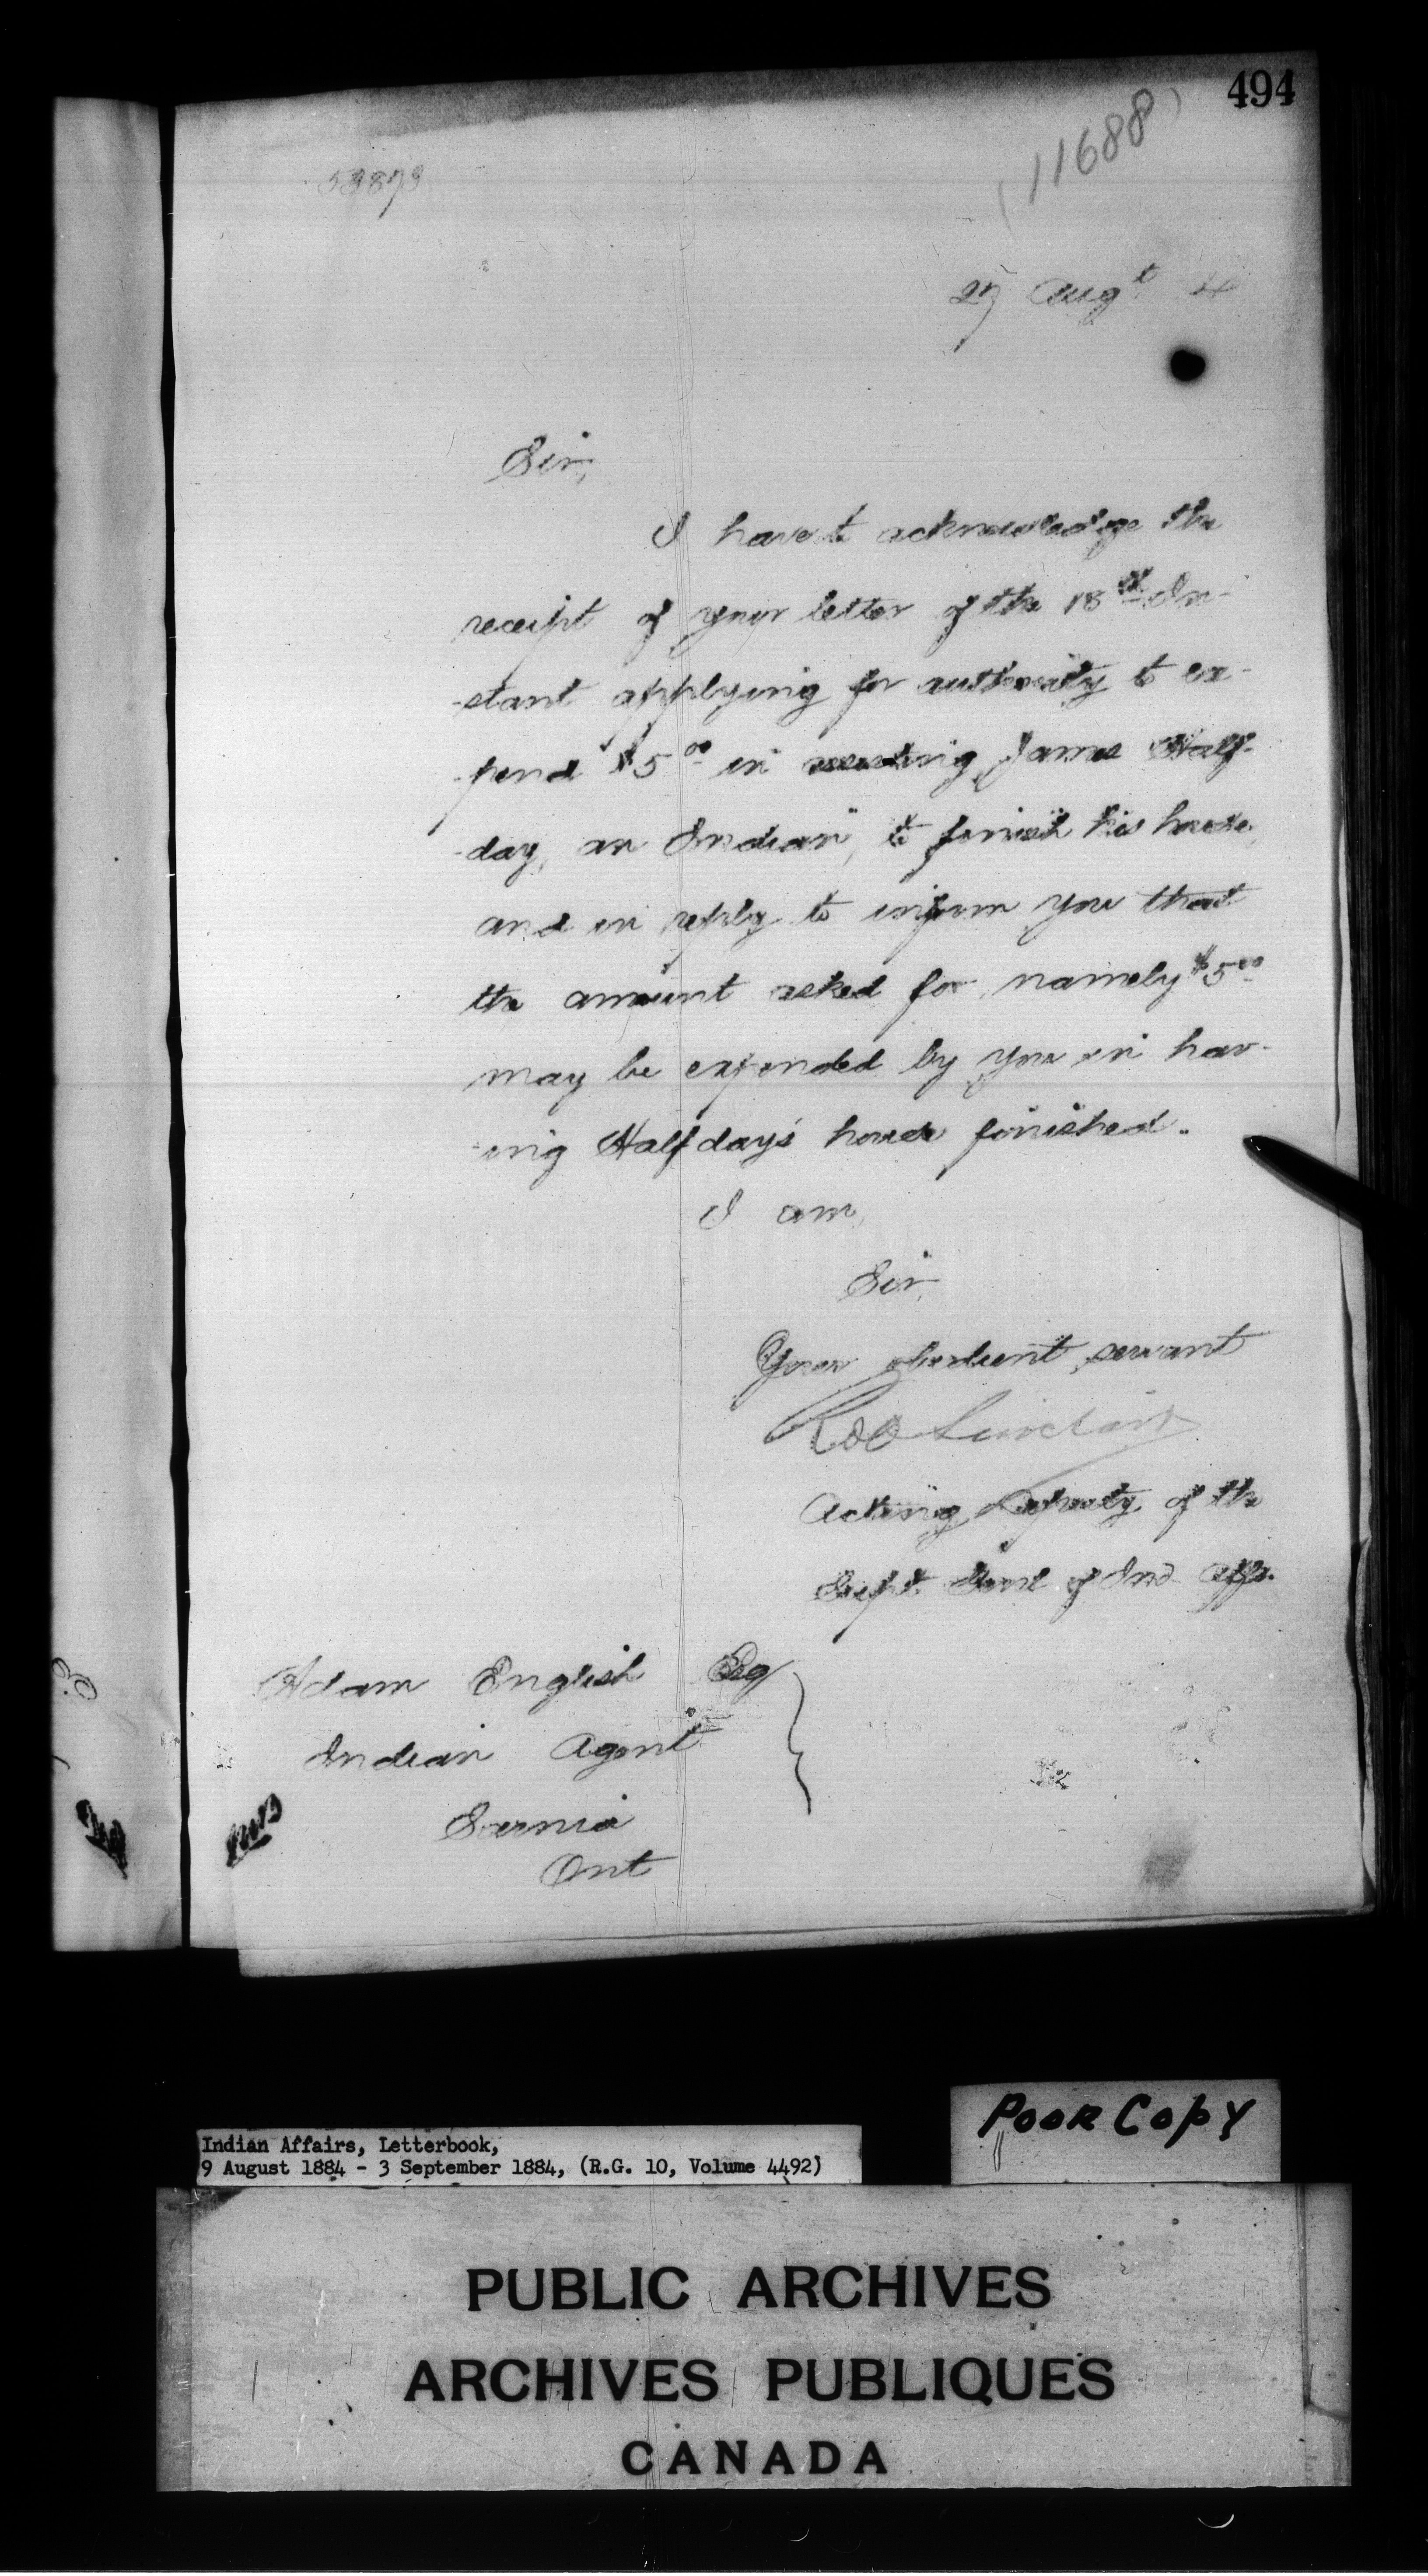 494
(11688)
27 Augt 4
Sir,
I have to acknowledge the
receipt of your letter of the 18th In-
-stant applying for authority to ex-
-pend $5 00 in assisting James Half-
-day, an Indian, to finish his house,
and in reply to inform you that
the amount asked for, namely $5 00
may be expended by you in hav-
-ing Halfday's house finished.
I am,
Sir,
Your obedient servant
Sinclair
Acting Deputy of the
Supt. Genl of Ind. Affs.
Adam English Esq
Indian Agent
Sarnia
Ont
Poor Copy
Indian Affairs, Letterbook,
9 August 1884 - 3 September 1884, (R.G. 10, Volume 4492)
PUBLIC ARCHIVES
ARCHIVES PUBLIQUES
CANADA